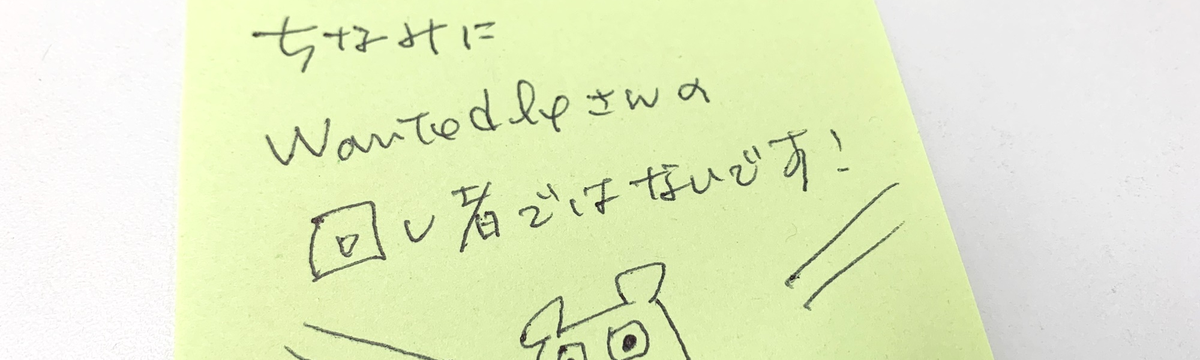 ちなみに
Wantedlyさんの
回し者ではないです!